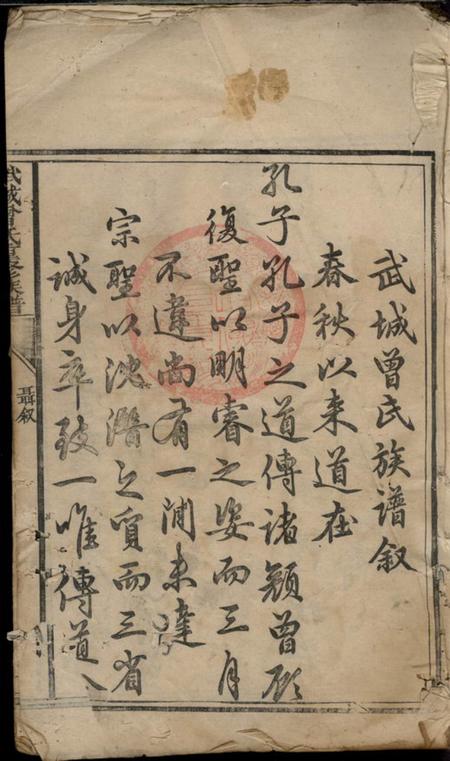 武城曾氏族譜叙
春秋以来道在
孔子孔子之道傳諸顏曾顧
復聖以明睿之姿而三月
不違尚有一間未達
宗聖以沈潛之質而三省
誠身卒致一唯傳道八
武城曾氏重修族譜
聶叙